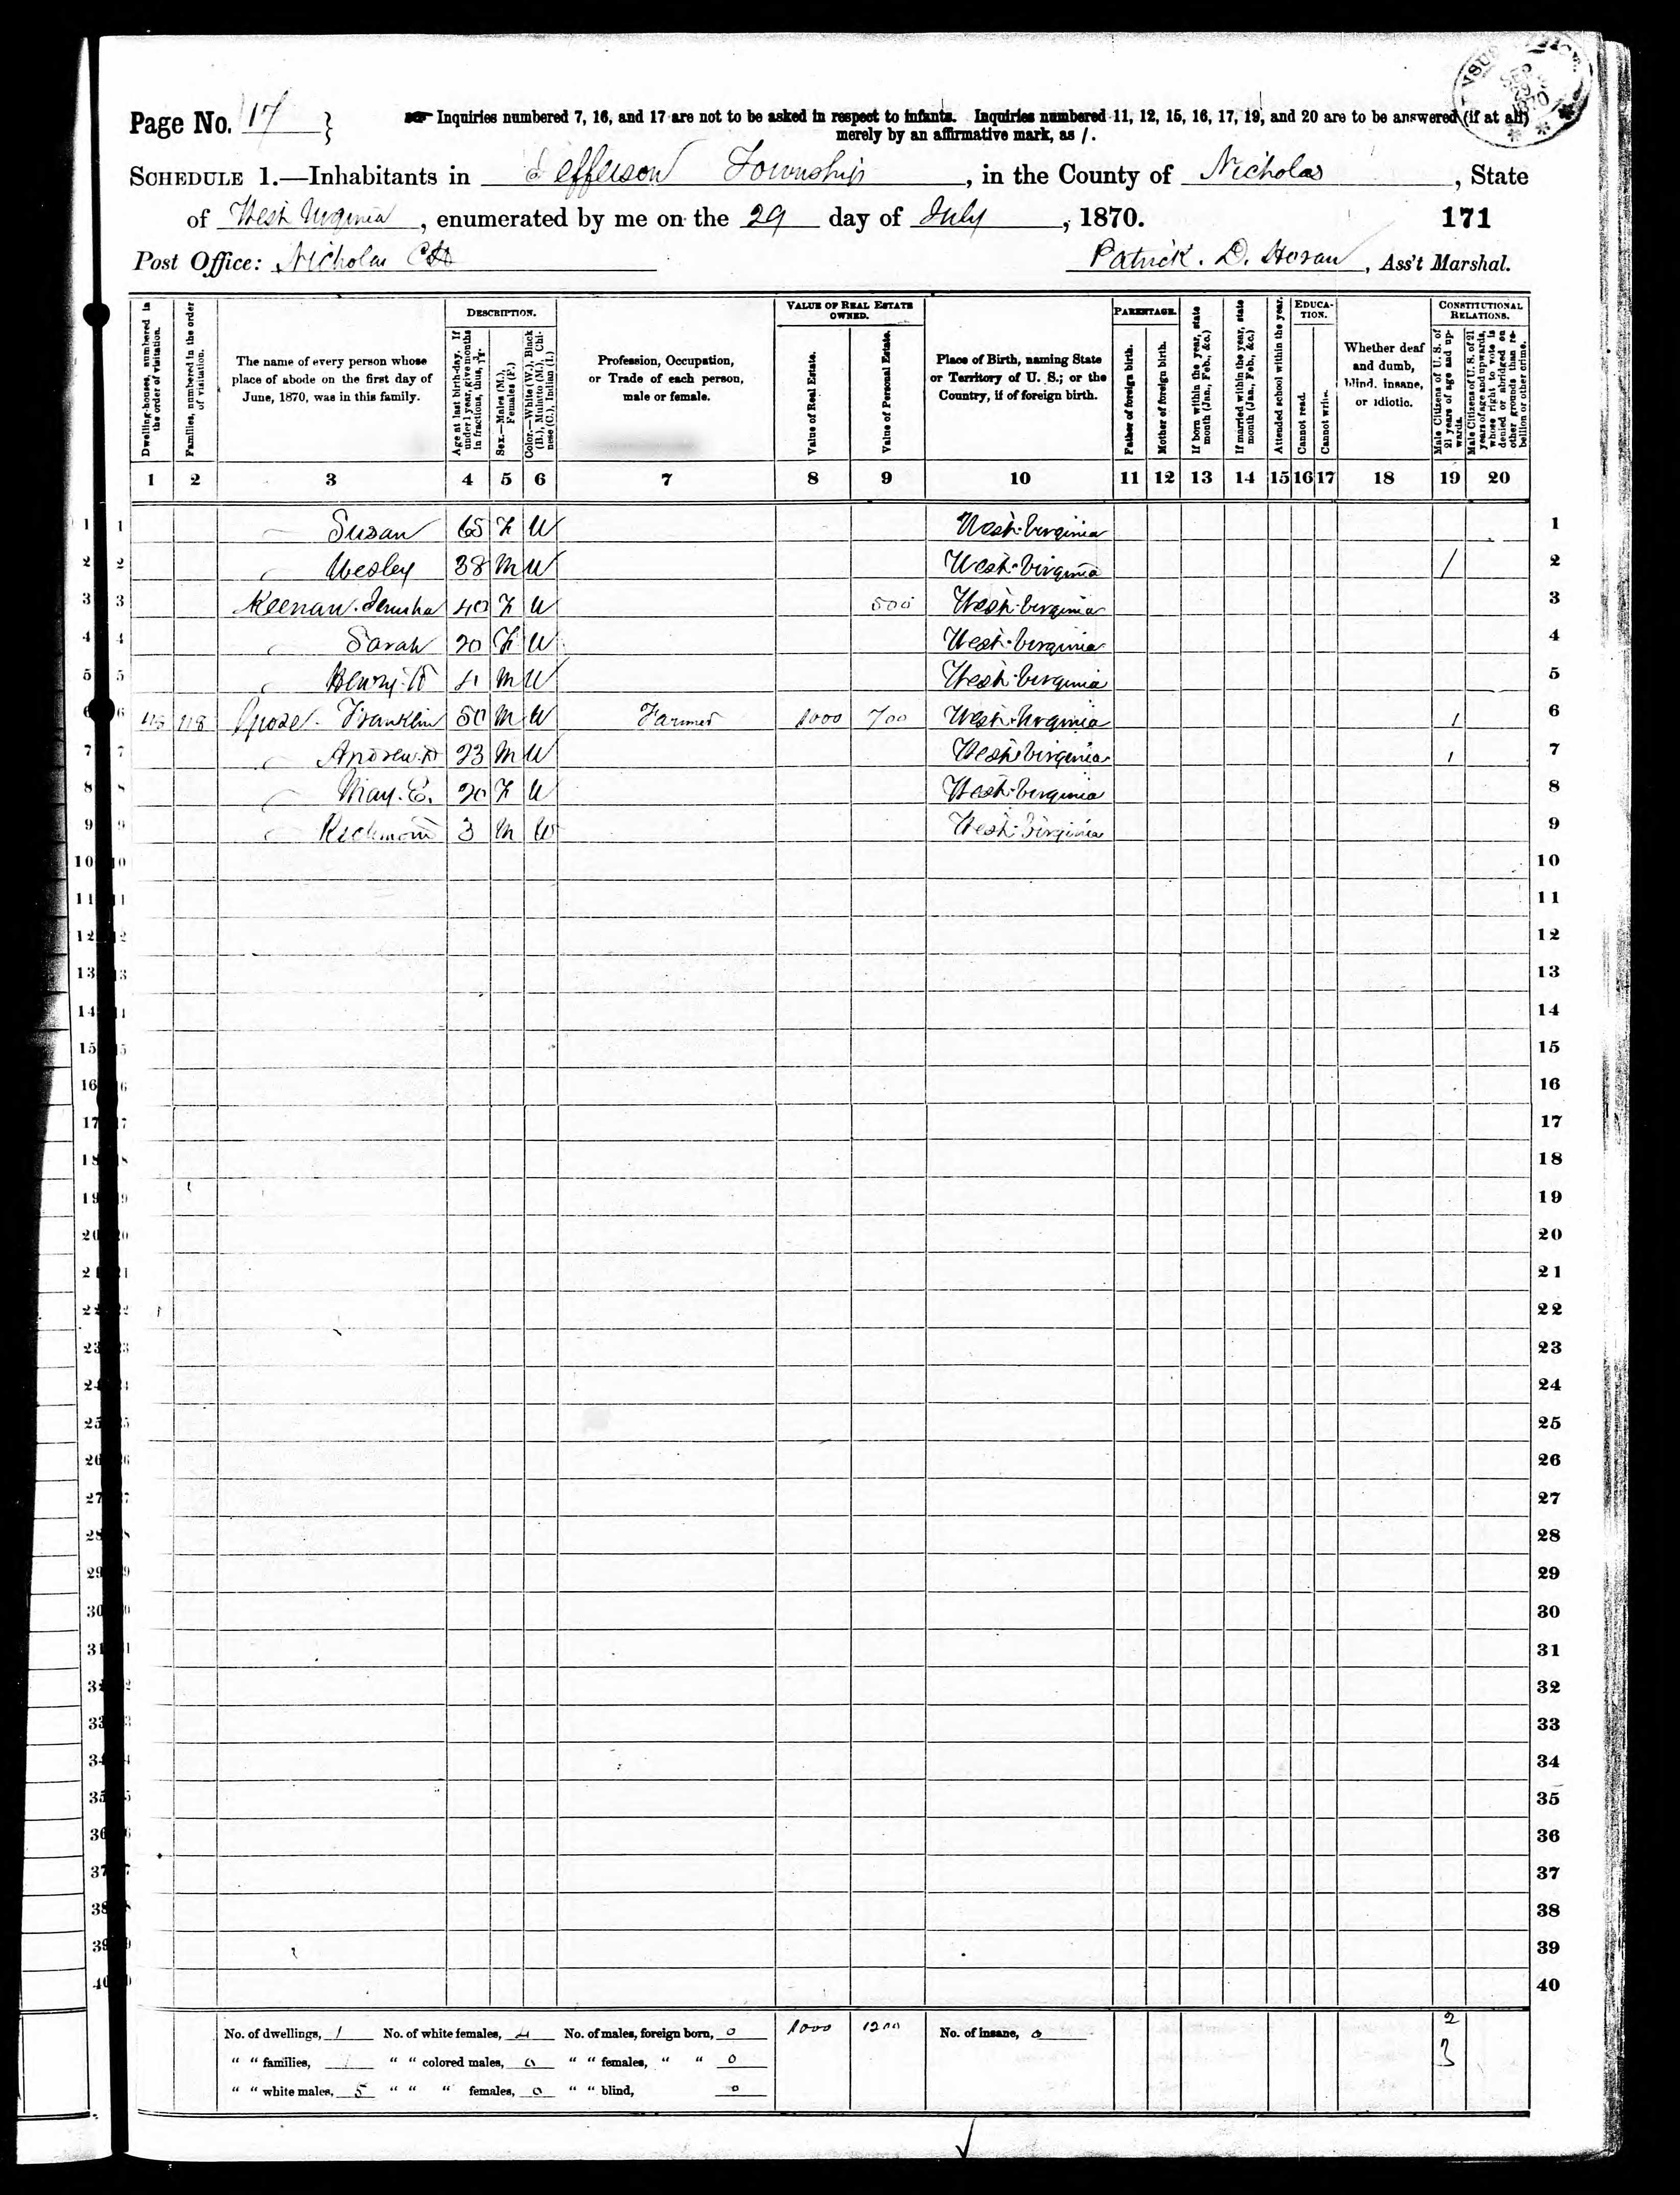 Page No. 17 }
Inquiries numbered 7, 16, and 17 are not to be asked in respect to infants. Inquiries numbered 11, 12, 15, 16, 17, 19, and 20 are to be answered (if at all)
merely by an affirmative mark, as /.
SCHEDULE 1.—Inhabitants in Jefferson Township, in the County of Nicholas, State
of West Virginia, enumerated by me on the 29 day of July, 1870.
171
Post Office: Nicholas CH
Patrick. D. Horan, Ass't Marshal.
Dwelling-houses, numbered in the order of visitation.
Families, numbered in the order of visitation.
The name of every person whose place of abode on the first day of June, 1870, was in this family.
DESCRIPTION.
Age at last birth-day. If under 1 year, give months in fractions, thus, 3/12.
Sex.—Males (M.), Females (F.)
Color.—White (W.), Black (B.), Mulatto (M.), Chinese (C.), Indian (I.)
Profession, Occupation, or Trade of each person, male or female.
VALUE OF REAL ESTATE OWNED.
Value of Real Estate.
Value of Personal Estate.
Place of Birth, naming State or Territory of U. S.; or the Country, if of foreign birth.
PARENTAGE.
Father of foreign birth.
Mother of foreign birth.
If born within the year, state month (Jan., Feb., &c.)
If married within the year, state month (Jan., Feb., &c.)
Attended school within the year.
EDUCATION.
Cannot read.
Cannot write.
Whether deaf and dumb, blind, insane, or idiotic.
CONSTITUTIONAL RELATIONS.
Male Citizens of U. S. of 21 years of age and upwards.
Male Citizens of U. S. of 21 years of age and upwards, whose right to vote is denied or abridged on other grounds than rebellion or other crime.
1 2 3 4 5 6 7 8 9 10 11 12 13 14 15 16 17 18 19 20
1 Susan 65 F W West Virginia 1
2 Wesley 38 M W West Virginia / 2
3 Keenan. Jerusha 40 F W 500 West Virginia 3
4 Sarah 20 F W West Virginia 4
5 Henry 4 M W West Virginia 5
6 118 Franklin 50 M W Farmer 1000 700 West Virginia / 6
7 Andrew 23 M W West Virginia / 7
8 May. E. 20 F W West Virginia 8
9 Richmond 3 M W West Virginia 9
10 10
11 11
12 12
13 13
14 14
15 15
16 16
17 17
18 18
19 19
20 20
21 21
22 22
23 23
24 24
25 25
26 26
27 27
28 28
29 29
30 30
31 31
32 32
33 33
34 34
35 35
36 36
37 37
38 38
39 39
40 40
No. of dwellings, 1 No. of white females, 4 No. of males, foreign born, 0 1000 1200 No. of insane, 0 2
" " families, 1 " " colored males, 0 " " females, " " 0 3
" " white males, 5 " " " females, 0 " " blind, 0